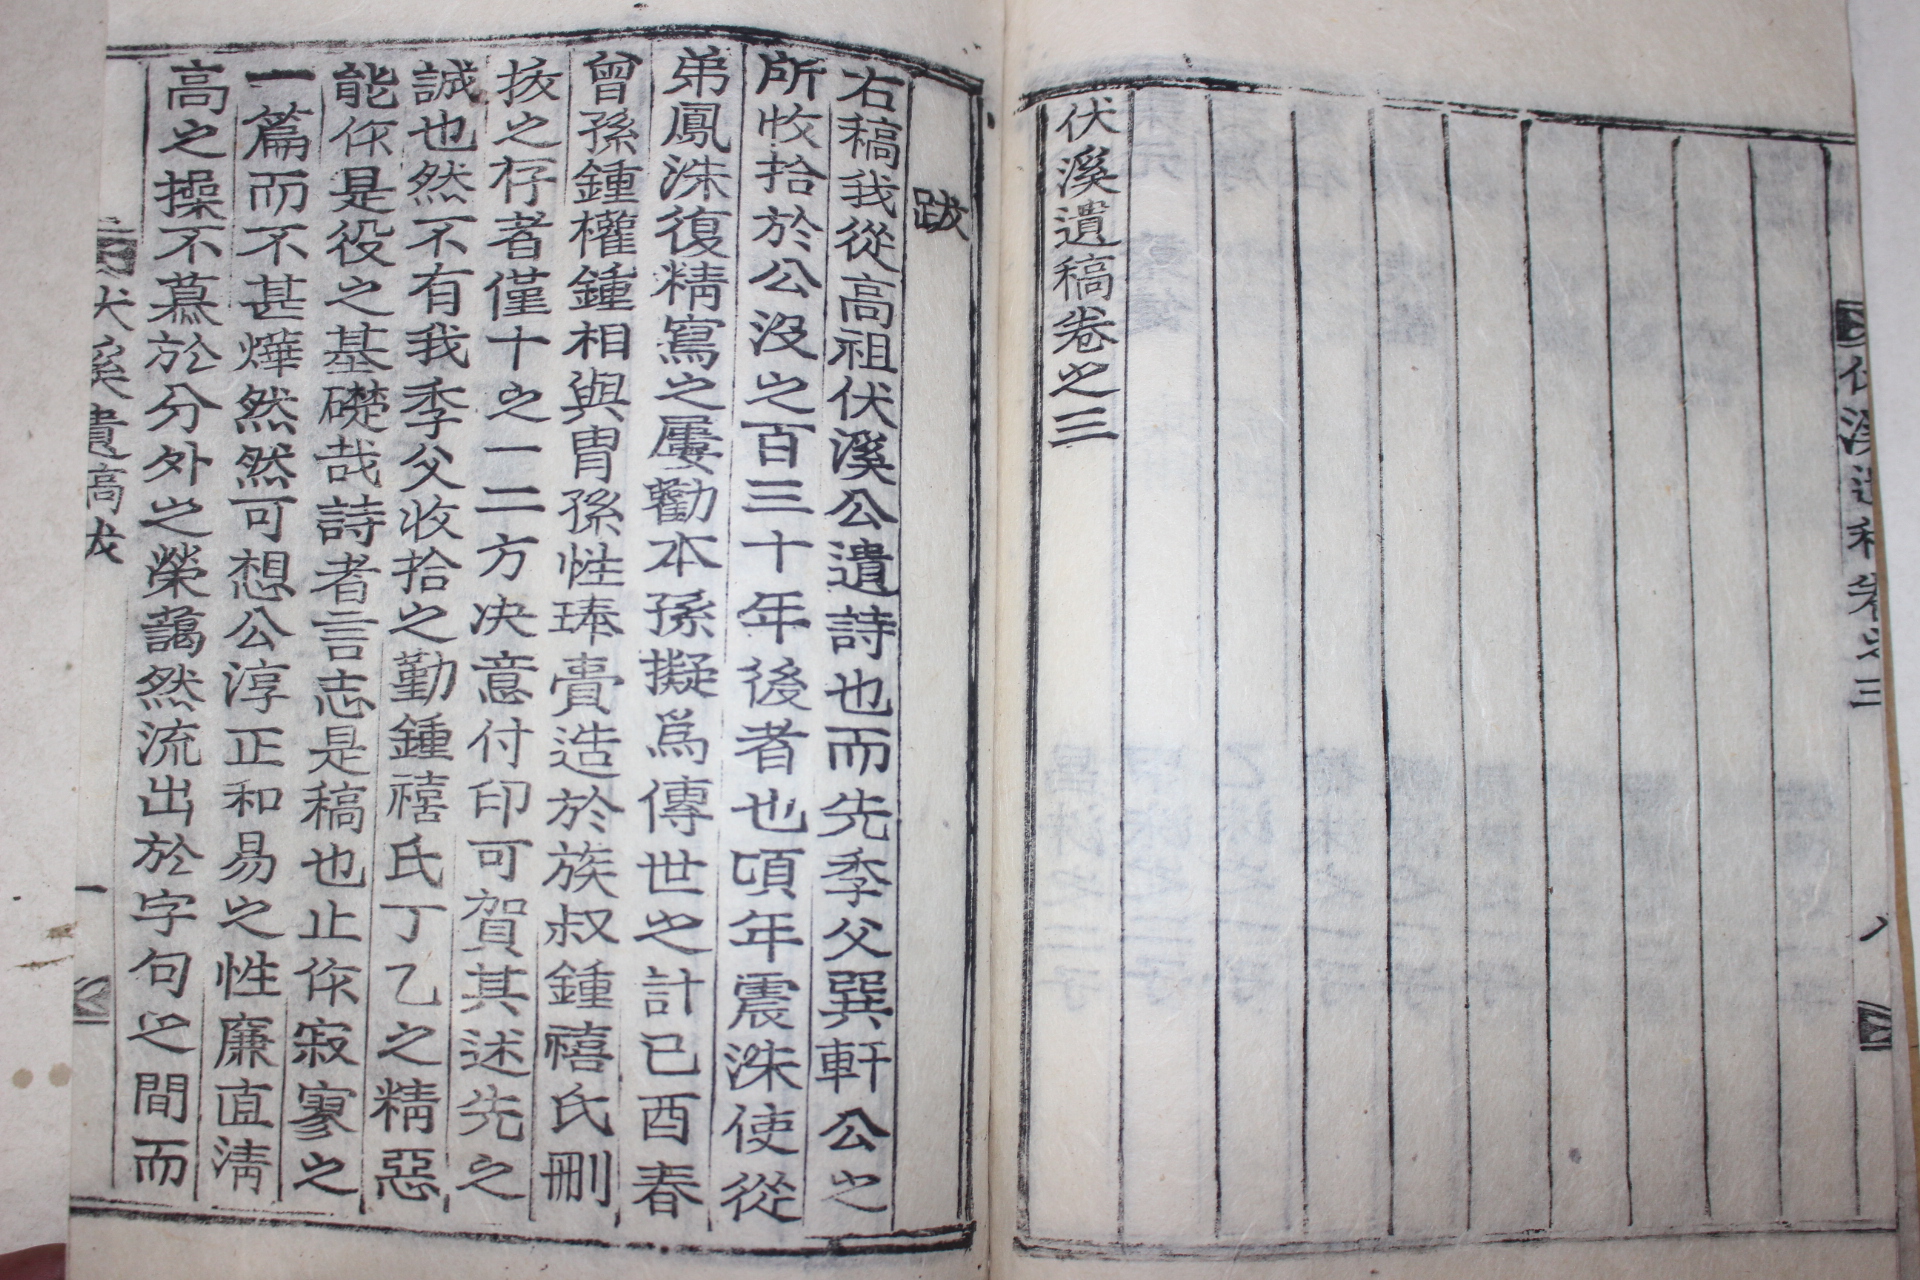 伏溪遺稿卷之三
八
伏溪遺稿卷之三
跋
右稿我從高祖伏溪公遺詩也而先季父巽軒公之
所收拾於公沒之百三十年後者也頃年震洙使從
弟鳳洙復精寫之屢勸本孫擬爲傳世之計已酉春
曾孫鍾權鍾相與胄孫性琫賣造於族叔鍾禧氏刪
拔之存者僅十之一二方决意付印可賀其述先之
誠也然不有我季父收拾之勤鍾禧氏丁乙之精惡
能作是役之基礎哉詩者言志是稿也止作寂寥之
一篇而不甚燁然然可想公淳正和易之性廉直淸
高之操不慕於分外之榮藹然流出於字句之間而
伏溪遺稿跋
一